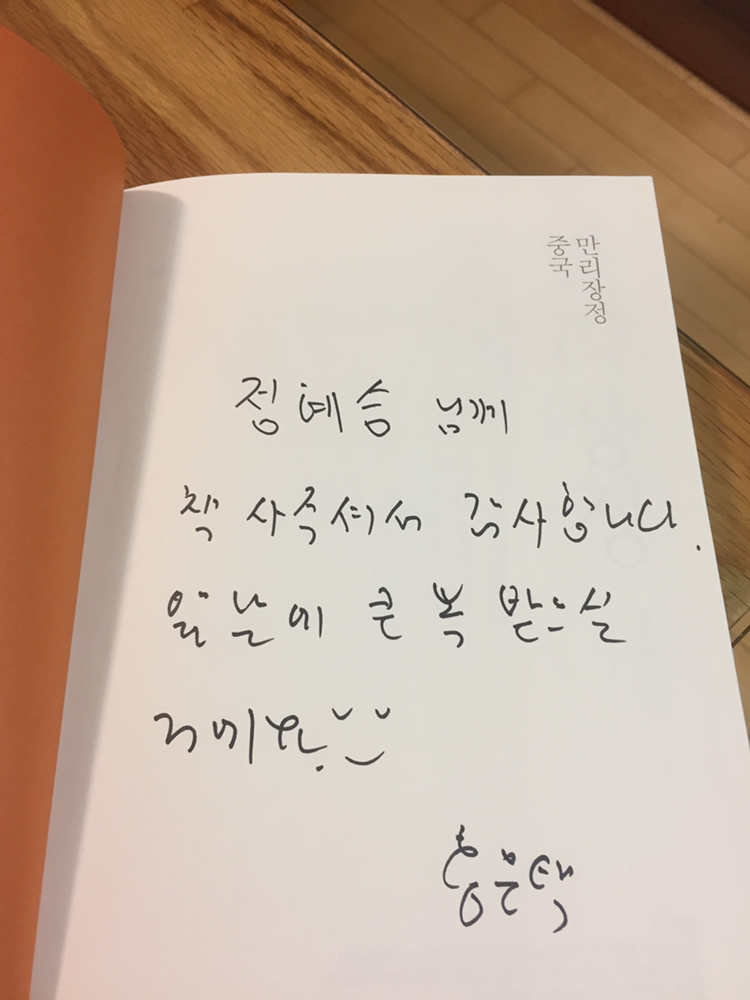 중국
만리장정
정혜승 님께
책 사주셔서 감사합니다.
앞날에 큰 복 받으실
거예요.
홍은택